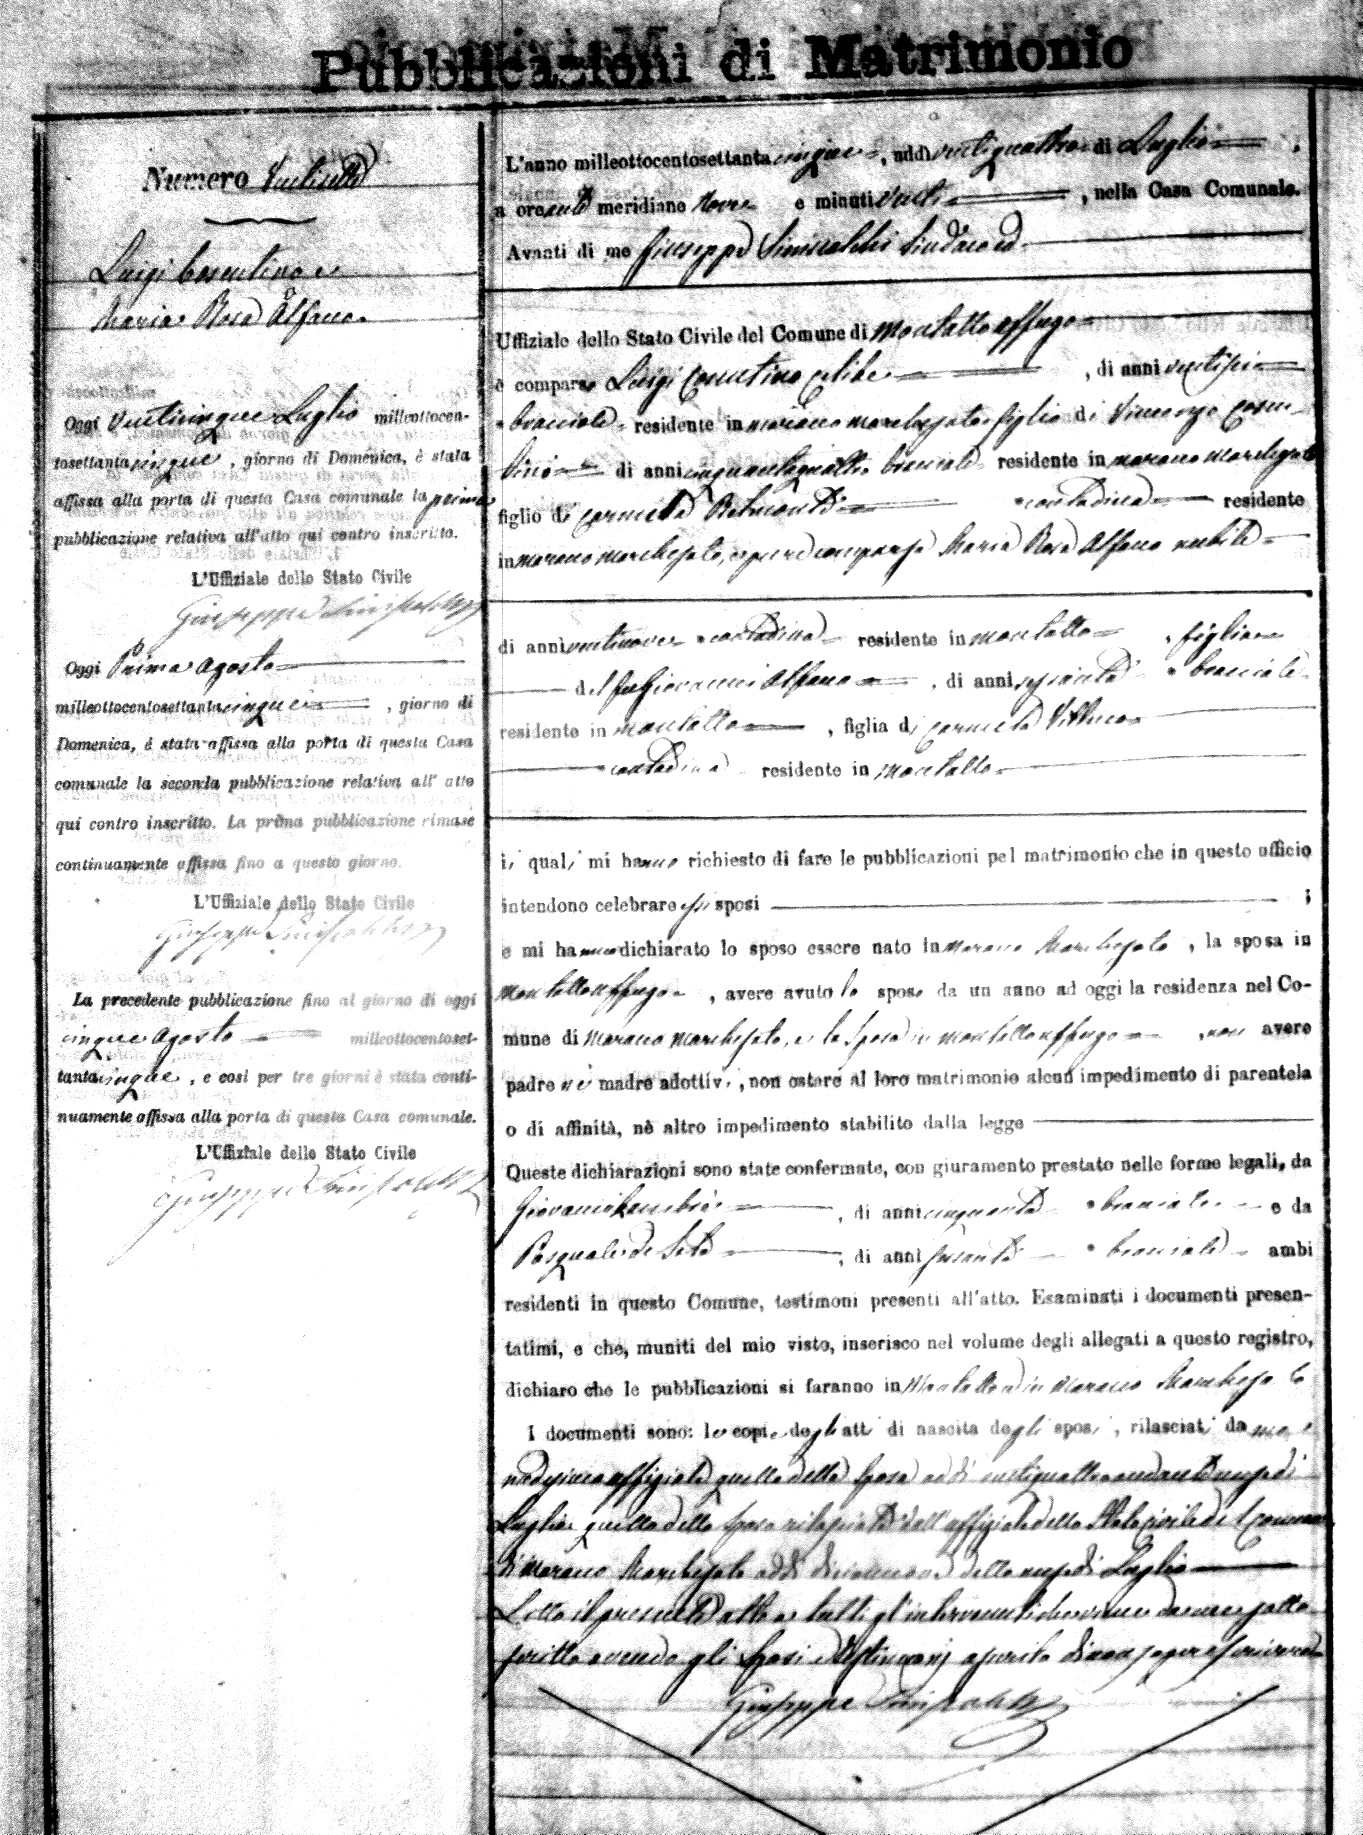 Pubblicazioni di Matrimonio
Numero Ventisette
Luigi Cosentino e
Maria Rosa Alfano
Oggi Venticinque Luglio milleottocen-
tosettantacinque, giorno di Domenica, è stata
affissa alla porta di questa Casa comunale la prima
pubblicazione relativa all'atto qui contro inscritto.
L'Uffiziale dello Stato Civile
Giuseppe
Oggi Primo Agosto
milleottocentosettantacinque, giorno di
Domenica, è stata affissa alla porta di questa Casa
comunale la seconda pubblicazione relativa all' atto
qui contro inscritto. La prima pubblicazione rimase
continuamente affissa fino a questo giorno.
L'Uffiziale dello Stato Civile
Giuseppe
La precedente pubblicazione fino al giorno di oggi
cinque Agosto milleottocentoset-
tantacinque, e così per tre giorni è stata conti-
nuamente affissa alla porta di questa Casa comunale.
L'Uffiziale dello Stato Civile
Giuseppe
L'anno milleottocentosettantacinque, addì ventiquattro di Luglio,
a ore anti meridiane nove e minuti venti, nella Casa Comunale.
Avanti di me Giuseppe Sindaco ed
Uffiziale dello Stato Civile del Comune di Montalto Uffugo
è comparso Luigi Cosentino celibe, di anni ventisei
bracciale residente in Marano Marchesato figlio di Vincenzo Cosen-
tino di anni cinquantaquattro bracciale residente in Marano Marchesato
figlio di Carmela contadina residente
in Marano Marchesato, e pure è comparsa Maria Rosa Alfano nubile
di anni ventinove contadina residente in Montalto, figlia
del fu Giovanni Alfano, di anni sessanta bracciale
residente in Montalto, figlia di Carmela
contadina residente in Montalto
i quali mi hanno richiesto di fare le pubblicazioni pel matrimonio che in questo ufficio
intendono celebrare essi sposi ;
e mi hanno dichiarato lo sposo essere nato in Marano Marchesato, la sposa in
Montalto Uffugo, avere avuto lo sposo da un anno ad oggi la residenza nel Co-
mune di Marano Marchesato, e la sposa in Montalto Uffugo, non avere
padre nè madre adottivi, non ostare al loro matrimonio alcun impedimento di parentela
o di affinità, nè altro impedimento stabilito dalla legge
Queste dichiarazioni sono state confermate, con giuramento prestato nelle forme legali, da
Giovanni, di anni cinquanta bracciale e da
Pasquale de Seta, di anni sessanta bracciale ambi
residenti in questo Comune, testimoni presenti all'atto. Esaminati i documenti presen-
tatimi, e che, muniti del mio visto, inserisco nel volume degli allegati a questo registro,
dichiaro che le pubblicazioni si faranno in Montalto ed in Marano Marchesato
I documenti sono: le copie degli atti di nascita degli sposi, rilasciati da me
medesimo uffiziale quella della sposa addì ventiquattro andante mese di
Luglio quella dello sposo rilasciata dall'uffiziale dello Stato Civile del Comune
di Marano Marchesato addì diciannove dello mese di Luglio
Letto il presente atto a tutti gl'intervenuti viene da me sotto
scritto avendo gli sposi e testimoni asserito di non sapere scrivere
Giuseppe